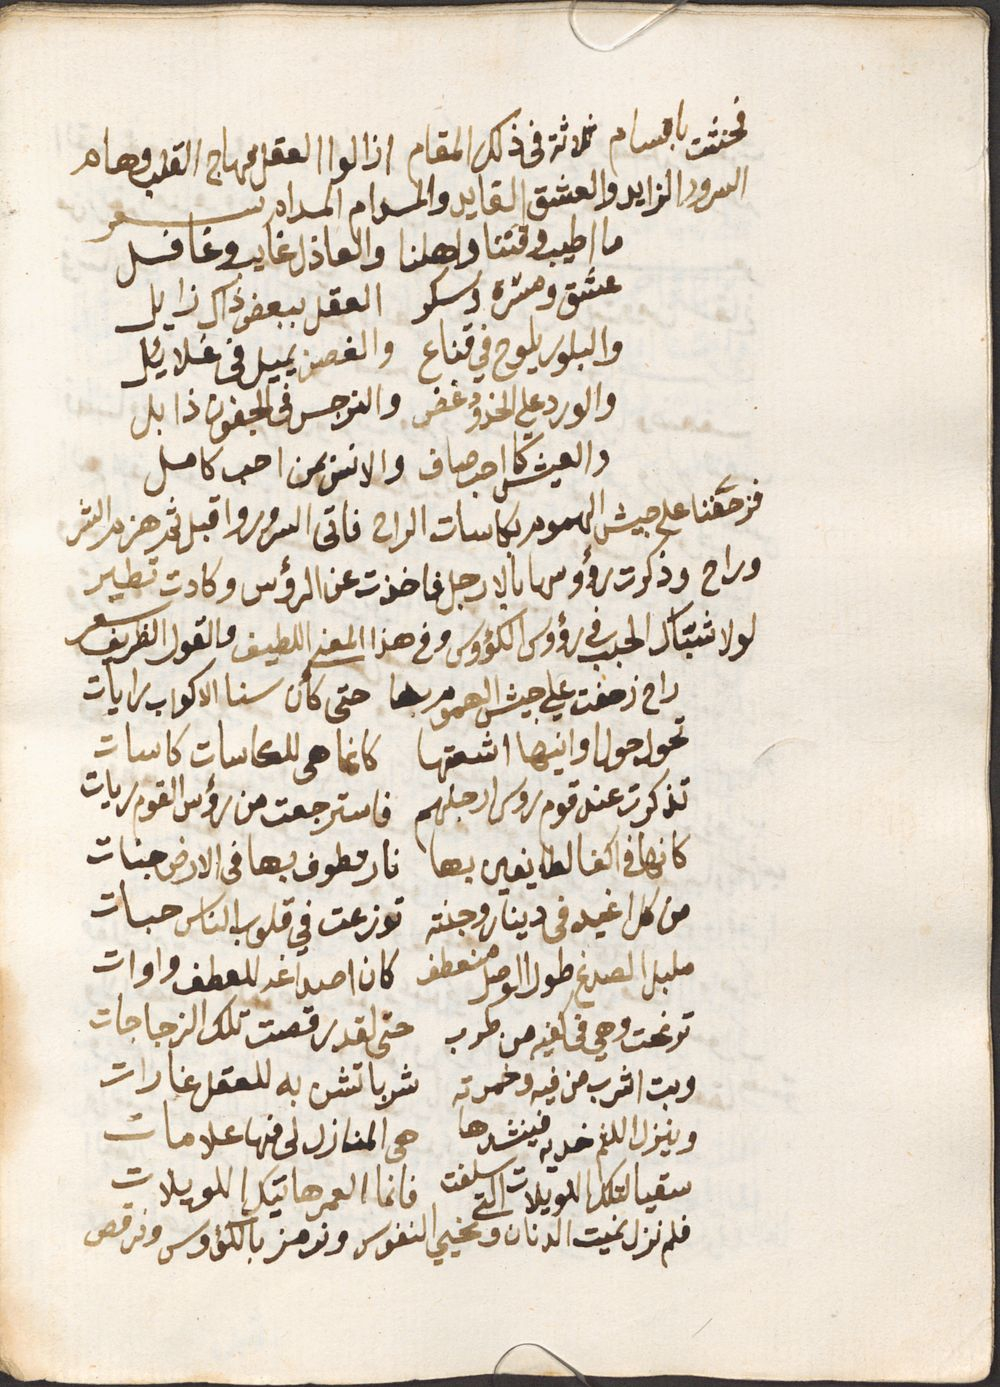 فخنثت باقسام ثلاثة في ذلك المقام ازالوا العقل وهاج القلب وهام
السرور الزايد والعشق القايد والمدام المدام شعر
ما اطيب وقتنا واهلنا والعاذل غايب وغافل
عشق ومسرة وسكر العقل ببعض ذاك زايل
والبلور يلوح في قناع والغصن يميل في غلايل
والورد على الخدود غض والنرجس في الجفون ذابل
والعيش كما احب صاف والانس بمن احب كامل
فزحفنا على جيش الهموم بكاسات الراح فاتى السرور واقبل ثم هزم الشر
وراح وذكرت رؤوسها بالارجل فاخذت عن الرؤس وكادت تطير
لولا شباك الحبب في رؤوس الكؤوس وفي هذا المعنى اللطيف والقول الظريف شعر
راح زحفت على جيش الهموم بها حتى كأن سنا الاكواب رايات
تحول حول اوانيها اشعتها كانما هي للكاسات كاسات
تذكرت عند قوم روس ارجلهم فاسترجعت من رؤس القوم ريات
كانها في اكف الطايفين بها نار تطوف بها في الارض جنات
من كل اغيد في دينار وجنته توزعت في قلوب الناس حبات
مبلبل الصدغ طول الوصل منعطف كان اصداغه للعطف واوات
ترنحت وهي في كفيه من طرب حتى لقد رقصت تلك الزجاجات
وبت اشرب من فيه وخمرته شربا تشن به للعقل غارات
وينزل اللثم خديه فينشدها هي المنازل لي فيها علامات
سقيا لتلك اللويلات التي سلفت فانما العمر هاتيك اللويلات
فلم نزل نميت الدنان ونحيي النفوس ونرمز بالكؤوس ونرقص